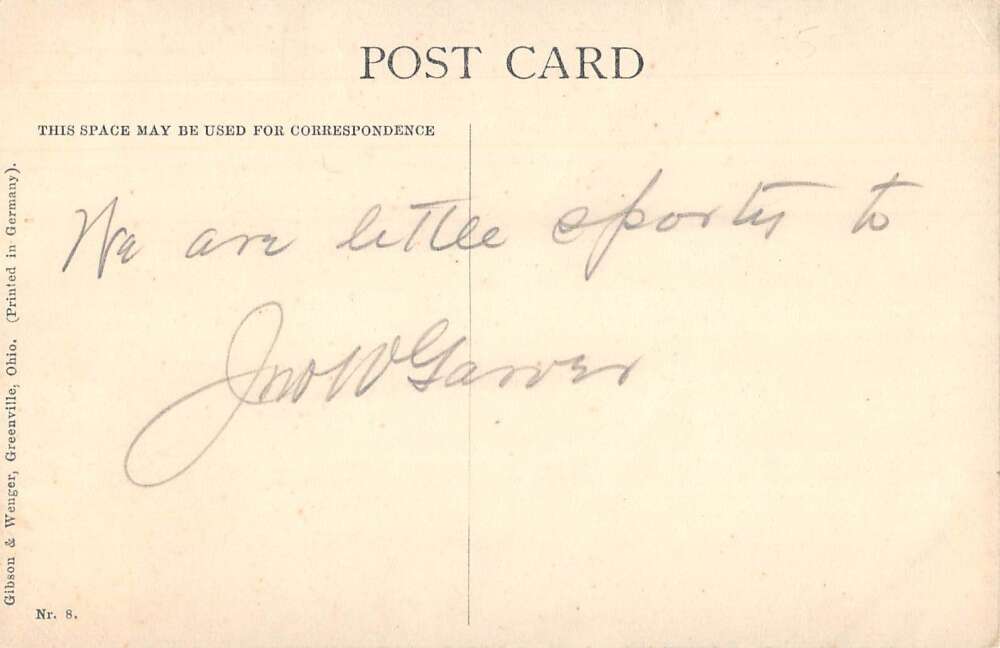 POST CARD
THIS SPACE MAY BE USED FOR CORRESPONDENCE
We are little sports to
Jno W Garver
Gibson & Wenger, Greenville, Ohio. (Printed in Germany).
Nr. 8.